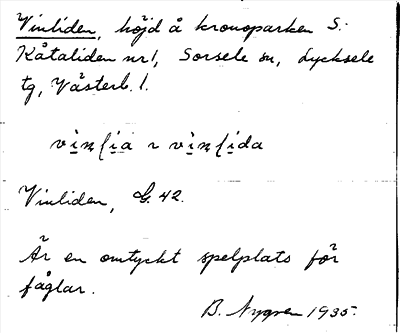 Vinliden, höjd å kronoparken S:
Kåtaliden nr 1, Sorsele sn, Lycksele
tg, Västerb. l.
vinlia ~ vinlida
Vinliden, G. 42.
Är en omtyckt spelplats för
fåglar.
B. Nygren 1935.